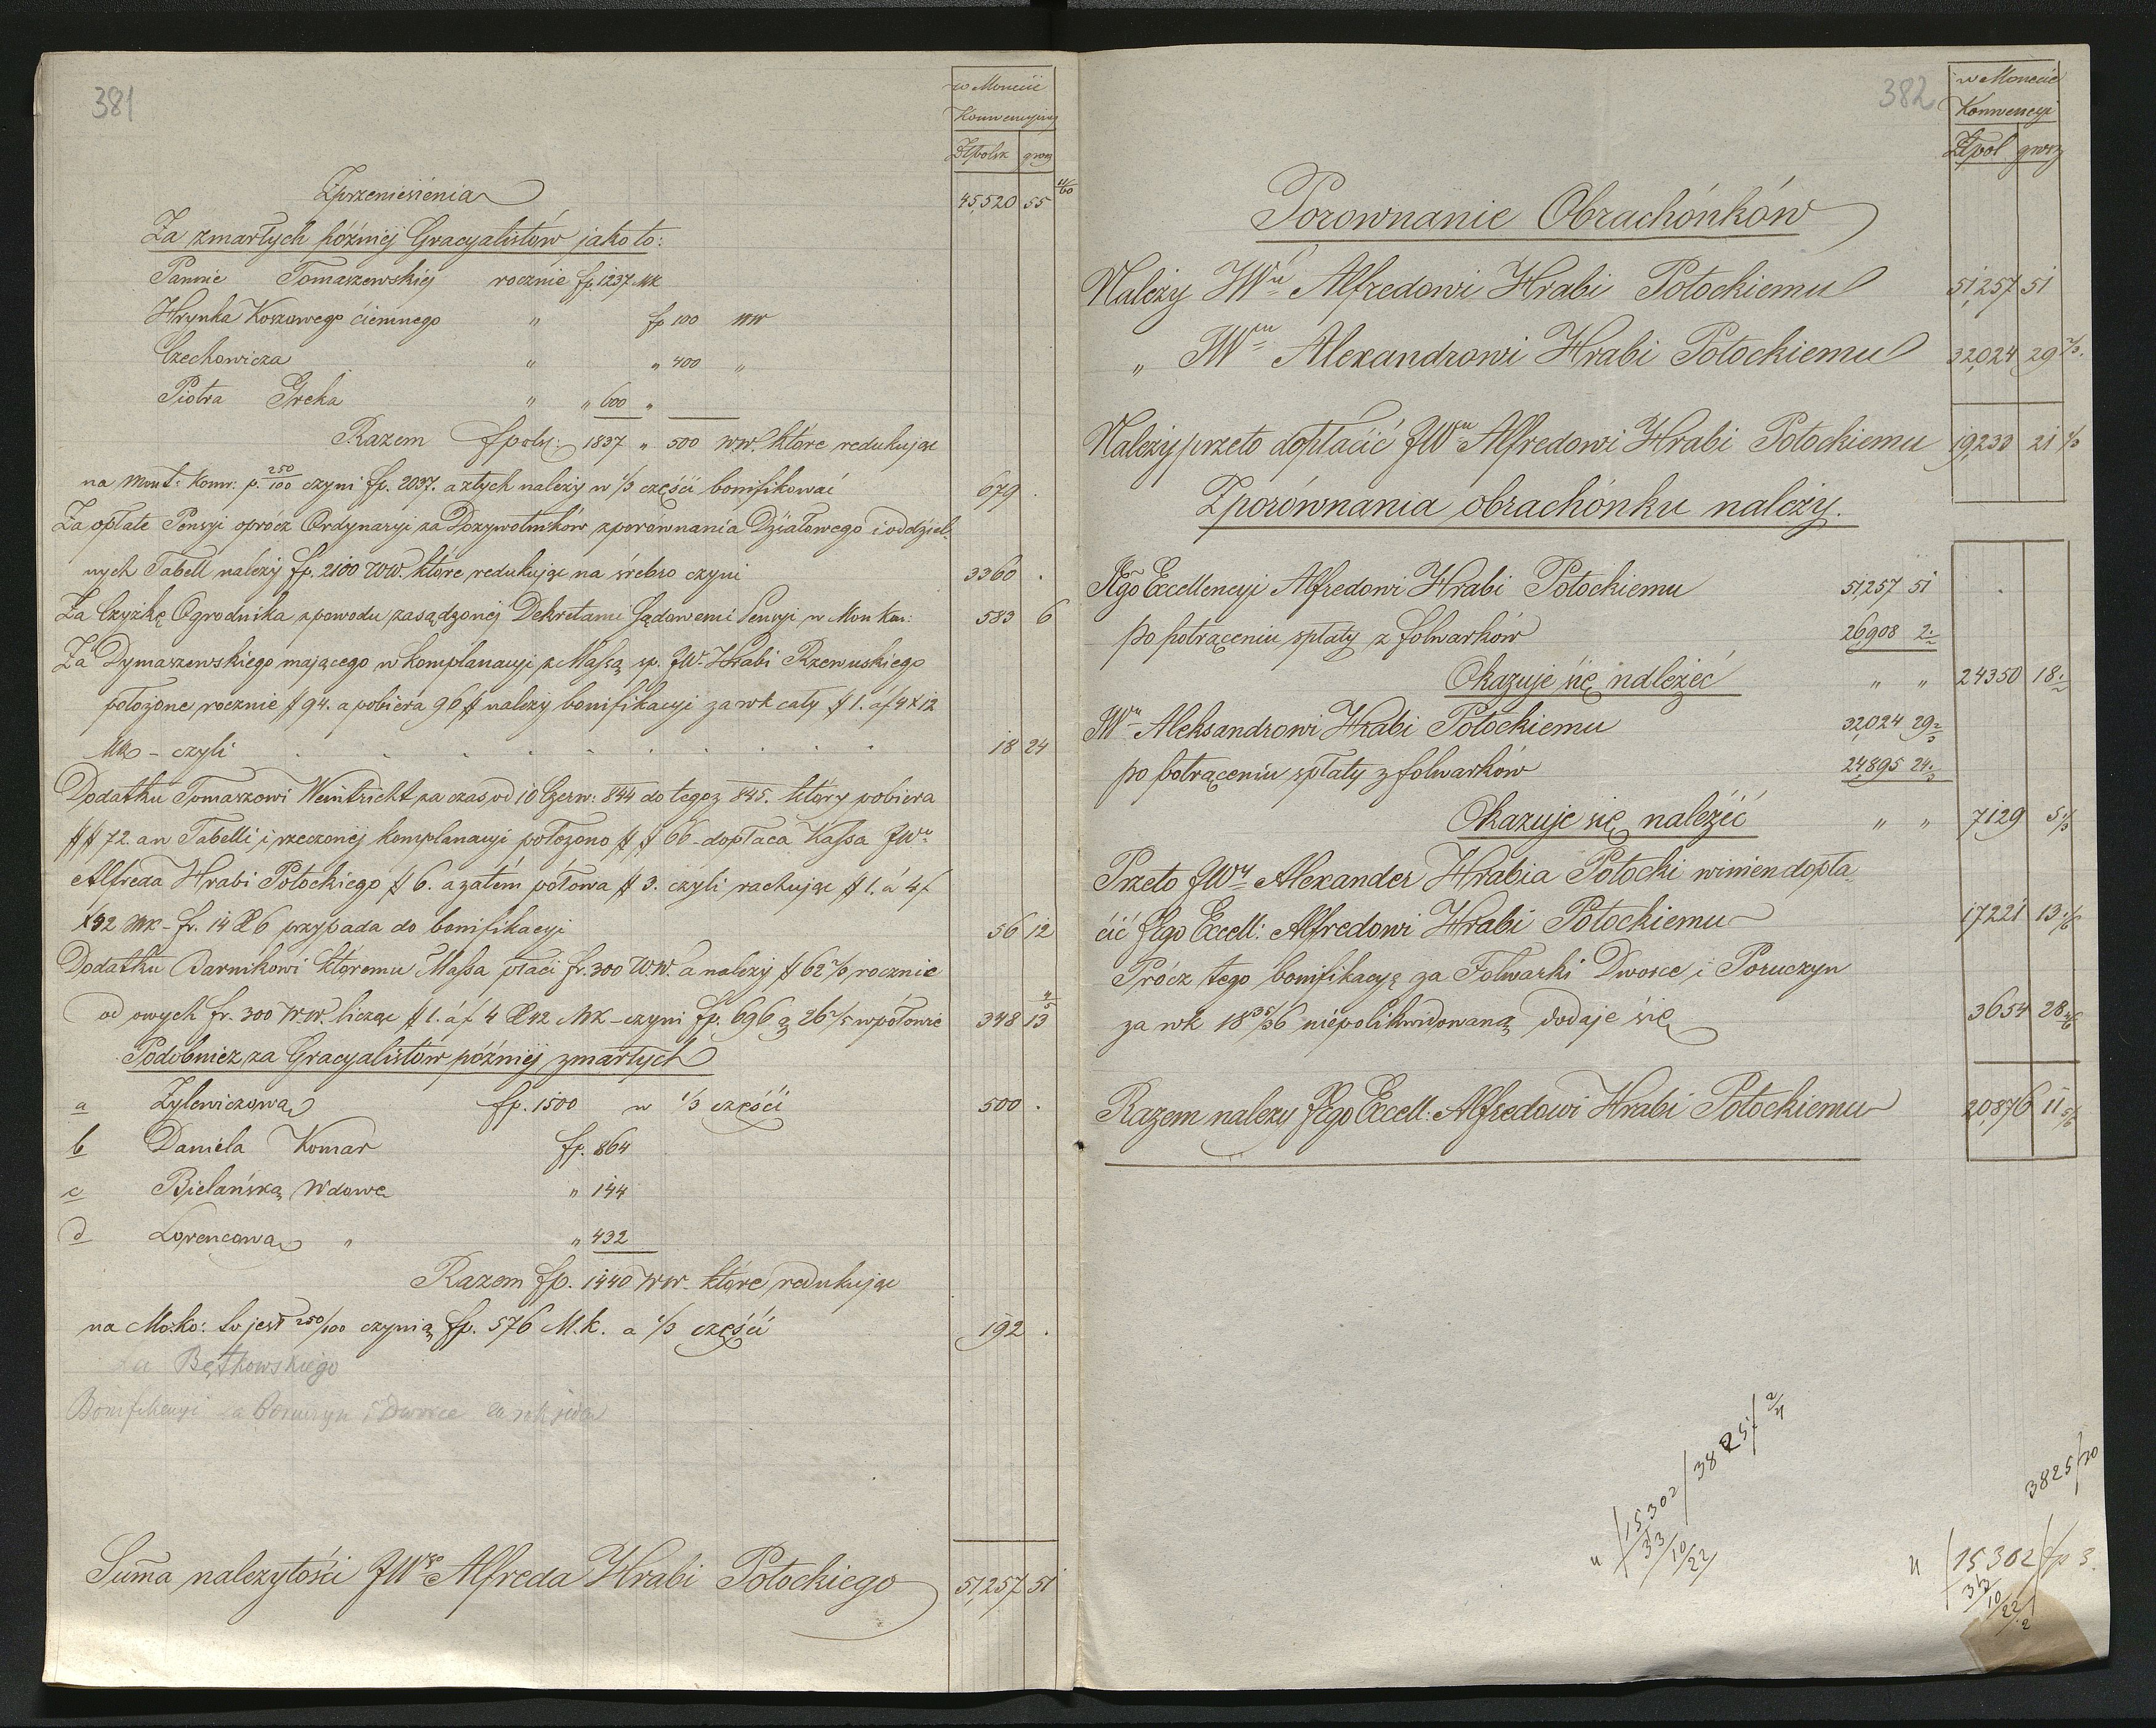 381
w Monecie
Konwencyjnej
Złpolsk grosz
Zprzeniesienia 45,520 55 11/60
Za zmarłych później Gracyalistów jako to:
Pannie Tomaszewskiej rocznie fp. 1237 Mk
Hrynka Koszowego ciemnego " fp 100 WW
Czechowicza " " 400 "
Piotra Greka " " 600 "
Razem fpols: 1837 " 500 WW. które redukując
na Mont: Konw: p. 250/100 czyni fp. 2037. a z tych należy w 1/3 części bonifikować 679 .
Za opłate Pensyi oprócz Ordynaryi za Dozywotników z porównania Działowego i oddziel-
nych Tabell należy fp. 2100 WW. które redukując na śrebro czyni 3360 .
Za Czyżkę Ogrodnika z powodu zasądzonej Dekretami Sądowemi Pensyi w Mon Kon: 583 6
Za Dymaszewskiego mającego w komplanacyi z Massą sp. JW. Hrabi Rzewuskiego
położone rocznie # 94. a pobiera 96 # należy bonifikacyi za rok cały # 1. á f 4 x 12
Mk - czyli 18 24
Dodatku Tomaszowi Weintricht za czas od 10 Czerw: 844 do tegoż 845. który pobiera
## 72. a w Tabelli i rzeczonej komplanacyi położono ## 66 - dopłaca Kassa JWu
Alfreda Hrabi Potockiego # 6. a zatém połowa # 3. czyli rachując # 1. á 4 f
x 42 Mk - fr. 14 x 6 przypada do bonifikacyi 56 12
Dodatku Barnikowi któremu Massa płaci fr. 300 WW. a należy # 62 2/3 rocznie
od owych fr. 300 WW. licząc # 1. á f. 4 x 42 Mk - czyni fp. 696 g 26 2/5 w połowie 348 13 4/5
Podobnież za Gracyalistów później zmarłych
a Zylewiczowa fp. 1500 w 1/3 części 500 .
b Daniela Komar fp. 864
c Bielańską Wdowe " 144
d Lorencowa " " 432
Razem fp. 1440 WW. które redukując
na Mo: ko: to jest 250/100 czynią fp. 576 M.k. a 1/3 części 192 .
za Bętkowskiego
Bonifikacyi za Poruczyn i Dworce
Suma należytości JWgo Alfreda Hrabi Potockiego 51,257 51
382
w Monecie
Konwencyi
Złpol grosz
Porownanie Obrachónków
Należy JWu Alfredowi Hrabi Potockiemu 51,257 51
" JWu Alexandrowi Hrabi Potockiemu 32,024 29 2/3.
Należy przeto dopłacić JWu Alfredowi Hrabi Potockiemu 19,233 21 1/3
Zporównania obrachónku należy.
Jego Excellencyi Alfredowi Hrabi Potockiemu 51,257 51
po potrąceniu spłaty z folwarków 26,908 2.
Okazuje się ndleżeć " " 24350 18.
JWu Aleksandrowi Hrabi Potockiemu 32,024 29 2/3
po potrąceniu spłaty z folwarków 24,895 24.
Okazuje się należeć " " 7129 5 1/3
Przeto JWy Alexander Hrabia Potocki winien dopła-
cić Jego Excell: Alfredowi Hrabi Potockiemu 17221 13 1/6
Prócz tego bonifikacyę za Folwarki Dworce i Poruczyn
za rok 18 35/36 niepolikwidowaną dodaje się 3654 28 4/6
Razem należy Jego Excell: Alfredowi Hrabi Potockiemu 20,876 11 5/6
4 / 15302 / 3825 / 2/4
33
10
22
3825/20
4 / 15302 / fp 3.
33
10
22
2